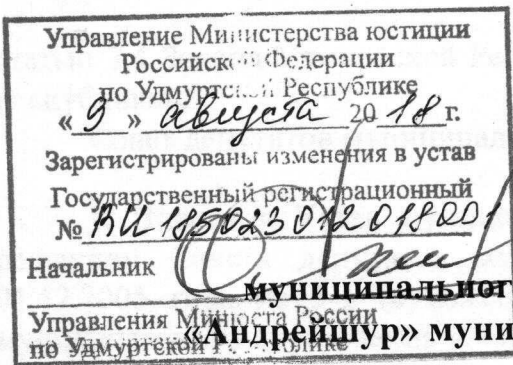 Управление Министерства юстиции
Российской Федерации
по Удмуртской Республике
« 9 » августа 20 18 г.
Зарегистрированы изменения в устав
Государственный регистрационный
№ RU185023012018001
Начальник
муниципальног
Управления Минюста России
по Удмуртской Республике
«Андрейшур» муни